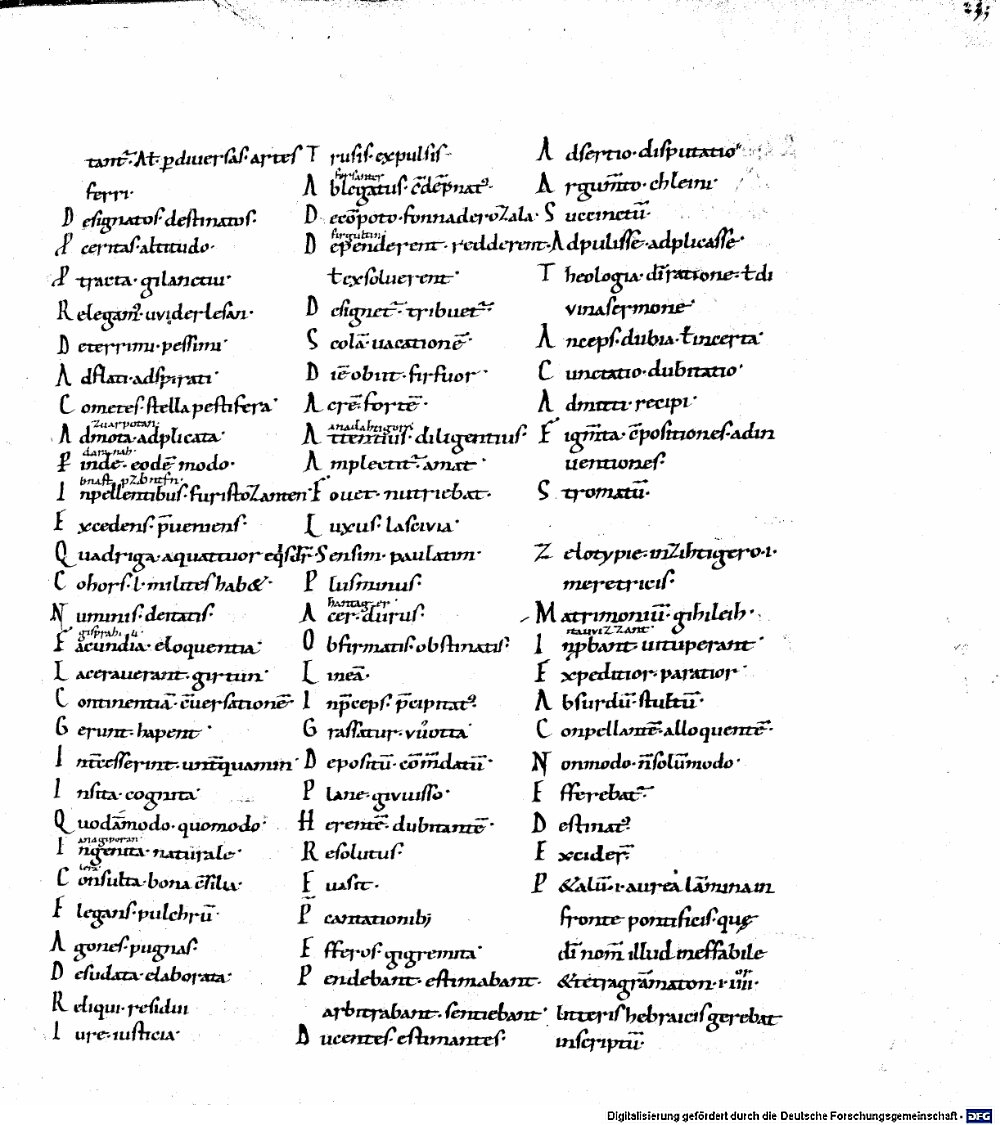 tant᷑. At ꝑdiuersas artes
ferri·
Designatos destinatos·
Pceritas· altitudo·
Ptracta· gilanctiu·
Relegam᷒· uviderlesan·
Deterrimi· pessimi·
Adflati· adspirati·
Cometes· stella pestifera·
zuarpotan
Admota· adplicata·
Pinde· eodē modo·
Inpellentibus· furistozanten·
Excedens· p̄ueniens·
Quadriga· aquattuor eq̄s
Cohors· l· milites hab&·
Numinis· deitatis·
Facundia· eloquentia·
Lacerauerant· girtun·
Continentiā· c̄uersationē·
Gerunt· hapent·
Int̄cesserint·
Insita· cognita·
Quodāmodo· quomodo·
anagiporan
Ingenita· naturale·
Consulta· bona c̄silia·
Elegans· pulchrū·
Agones· pugnas·
Desudata· elaborata·
Reliqui· residui
Iure· iusticia·
Trusis· expulsis·
Ablegatus· c̄dēpnat᷒·
Decōpoto· fonnaderozala·
Dependerent· redderent·
ł exsoluerent·
Designet᷑· tribuet᷑·
Scolā· uacationē·
Diē obiit· firfuor·
Acrē· fortē·
Attentius· diligentius·
Amplectit᷑· amat·
Fouet· nutriebat·
Luxus· lascivia·
Sensim· paulatim·
Plus minus·
Acer· durus·
Obfirmatis· obstinatis·
Lineā·
Inp̄ceps· p̄cipitat᷒·
Grassatur·
Depositū· cōm̄datū·
Plane· givuisso·
Herentē· dubitantē·
Resolutus·
Euasit·
P̄cantationibꝫ
Efferos· gigremita·
Pendebant· estimabant·
arbitrabant· sentiebant·
Ducentes· estimantes·
Adsertio· disputatio
Argum̄to· chleini·
Succinctū·
Adpulisse· adplicasse·
Theologia· dī ratione· ł di
vina sermone·
Anceps· dubia· ł incerta·
Cunctatio· dubitatio·
Admitti· recipi·
Figm̄ta· c̄positiones· adin
uentiones·
Stromatū·
Zelotypie· inzihtigero· i·
meretricis·
Matrimoniū· gihileih·
Inp̄bant· uituperant·
Expeditior· paratior·
Absurdū· stultū·
Conpellantē· alloquentē·
Nonmodo· n̄solūmodo·
Efferebat᷑·
Destinat᷒·
Excider̄·
P&alū· i· aurea lāmina in
fronte pontificis· quę
dī nom̄ illud ineffabile
& tetragrāmaton· i· iiii·
litteris hebraicis gerebat
inscriptū·
Digitalisierung gefördert durch die Deutsche Forschungsgemeinschaft - DFG